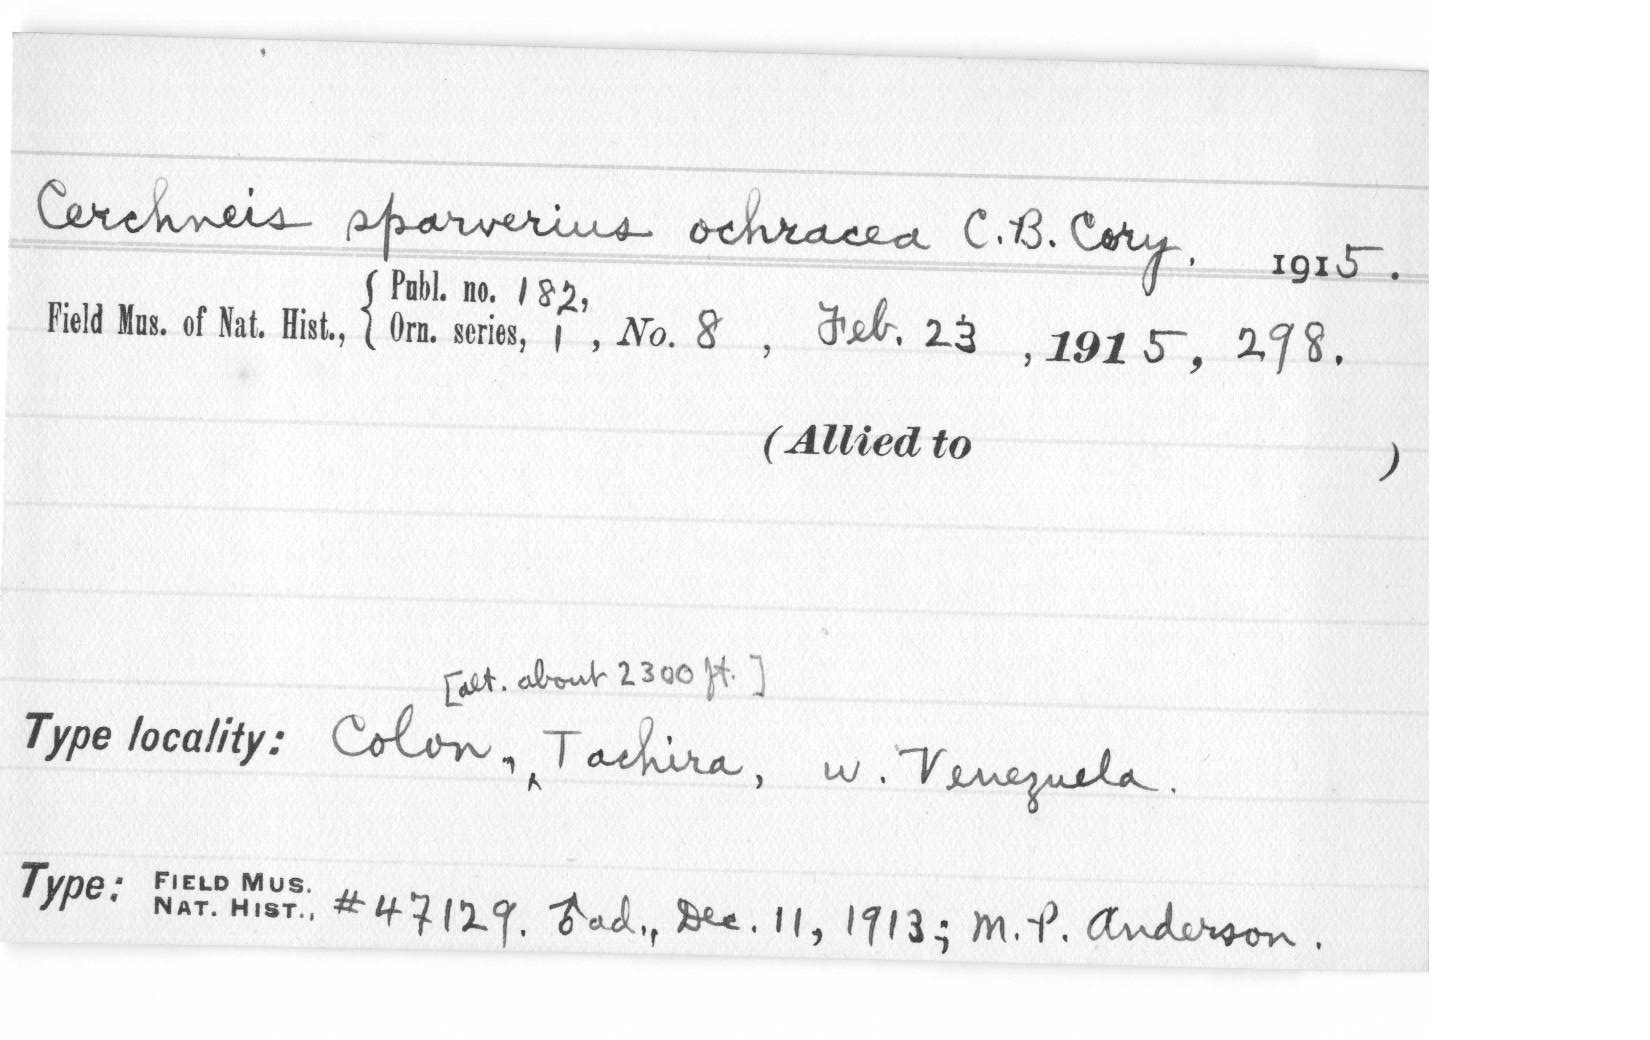 Cerchneis sparverius ochracea C.B. Cory. 1915.
Field Mus. of Nat. Hist., { Publ. no. 182,
Orn. series, 1, No. 8, Feb. 23, 1915, 298.
(Allied to )
[alt. about 2300 ft.]
Type locality: Colon, Tachira, w. Venezuela.
Type: FIELD MUS. NAT. HIST., #47129. ♂ ad., Dec. 11, 1913; M. P. Anderson.